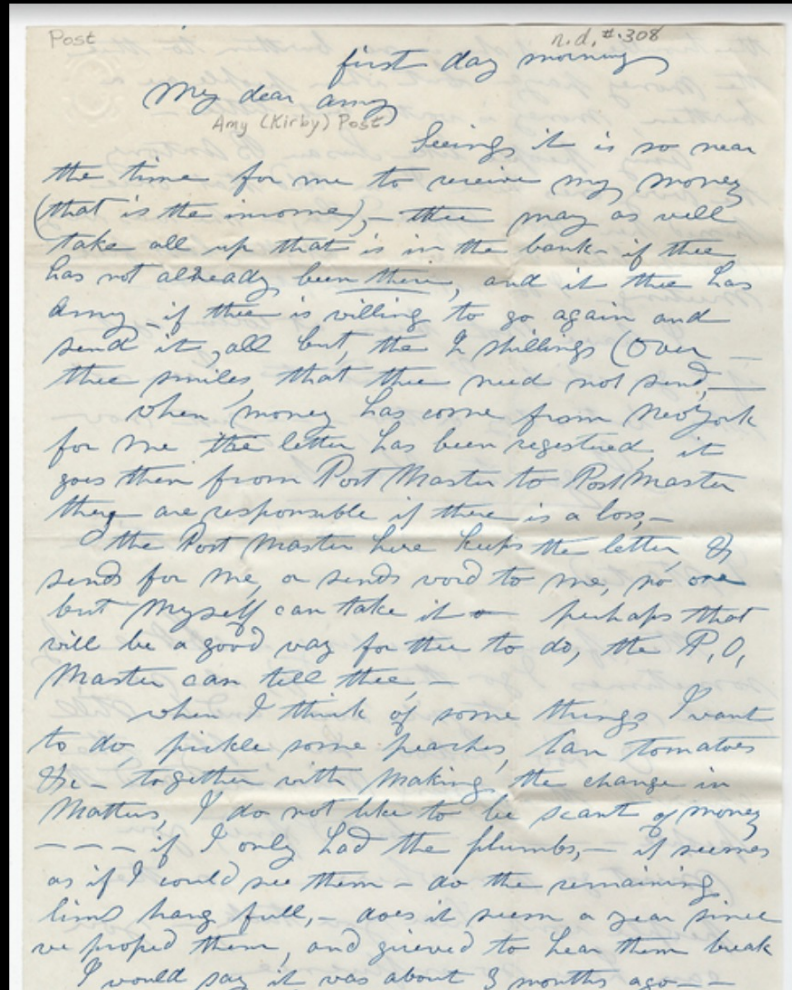 Post
n.d. #308
first day morning
My dear Amy
Amy (Kirby) Post
Seeings it is so near
the time for me to receive my money
(that is the income),- thee may as well
take all up that is in the bank- if thee
has not already been there, and if thee has
Amy - if thee is willing to go again and
send it, all but, the 2 shillings (Over —
thee smiles, that thee need not send,—
when money has come from NewYork
for me the letter has been registred, it
goes then from Post Master to Post Master
they are responsible if there is a loss,-
the Post Master here keeps the letter, &
sends for me, or sends word to me, no one
but myself can take it - perhaps that
will be a good way for thee to do, the P,O,
Master can tell thee, -
when I think of some things I want
to do, pickle some peaches, Can tomatoes
&c - together with making, the change in
Matters, I do not like to be scant of money
- - - - if I only had the plumbs, - it seemes
as if I could see them - do the remaining
limbs hang full, - does it seem a year since
we proped them, and grieved to hear them break
I would say it was about 3 months ago - -